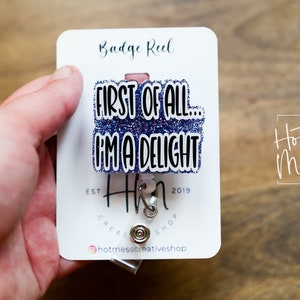 Badge Reel
FIRST OF ALL...
I'M A DELIGHT
EST 2019
Hm
CREATIVE SHOP
hotmesscreativeshop